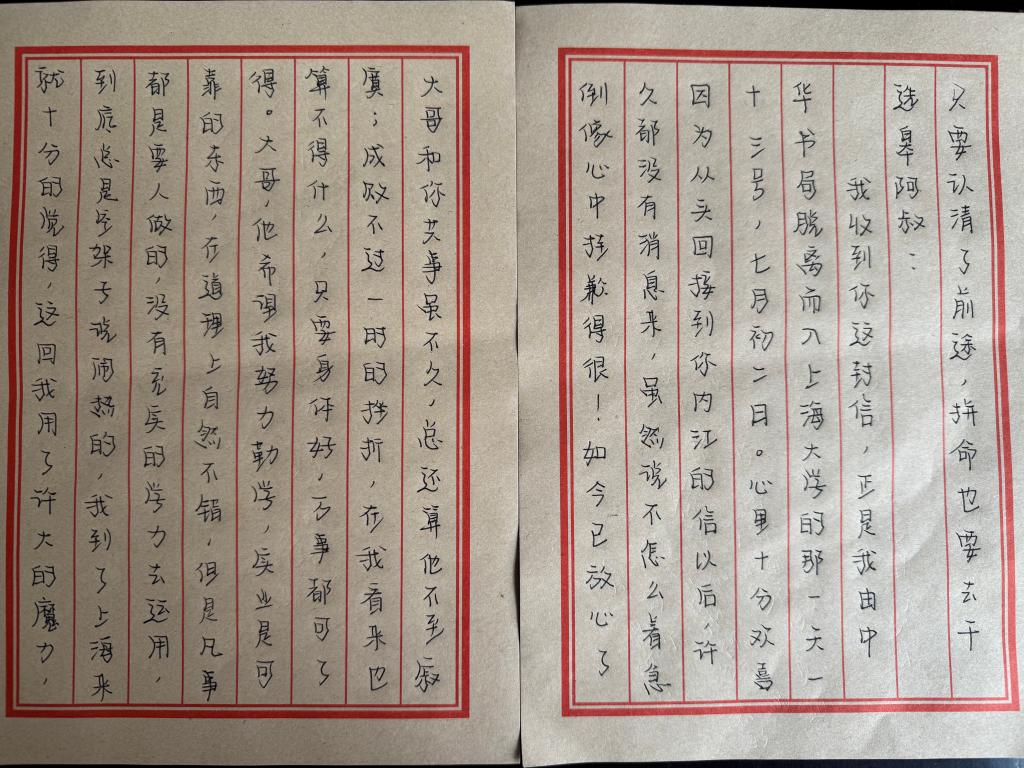 只要认清了前途，拼命也要去干
选皋阿叔：
我收到你这封信，正是我由中
华书局脱离而入上海大学的那一天一
十三号，七月初二日。心里十分欢喜
因为从头回接到你内江的信以后，许
久都没有消息来，虽然说不怎么着急
倒像心中挂歉得很！如今已放心了
大哥和你共事虽不久，总还算他不至寂
寞；成败不过一时的挫折，在我看来也
算不得什么，只要身体好，万事都可了
得。大哥，他希望我努力勤学，实业是可
靠的东西，在道理上自然不错，但是凡事
都是要人做的，没有充实的学力去运用，
到底总是空架子说闹热的，我到了上海来
就十分的觉得，这回我用了许大的魔力，